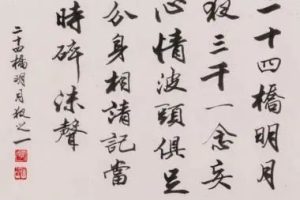 二十四橋明月
夜三千一念矣
心情波頭俱足
分身相請記當
時碎沫聲
二十四橋明月夜之一